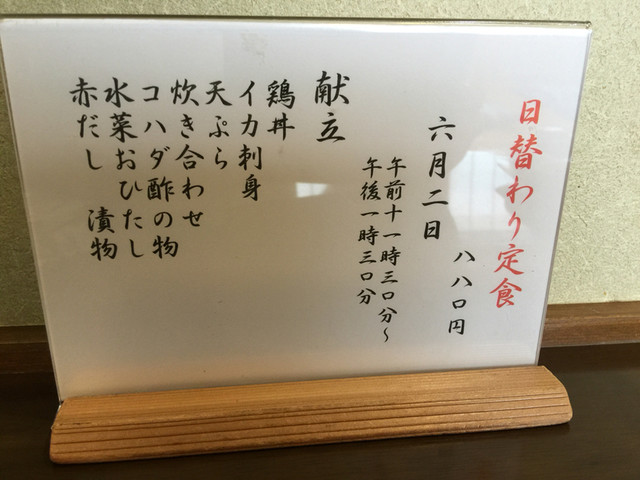 日替わり定食
八八〇円
六月二日
午前十一時三〇分～
午後一時三〇分
献立
鶏丼
イカ刺身
天ぷら
炊き合わせ
コハダ酢の物
水菜おひたし
赤だし 漬物